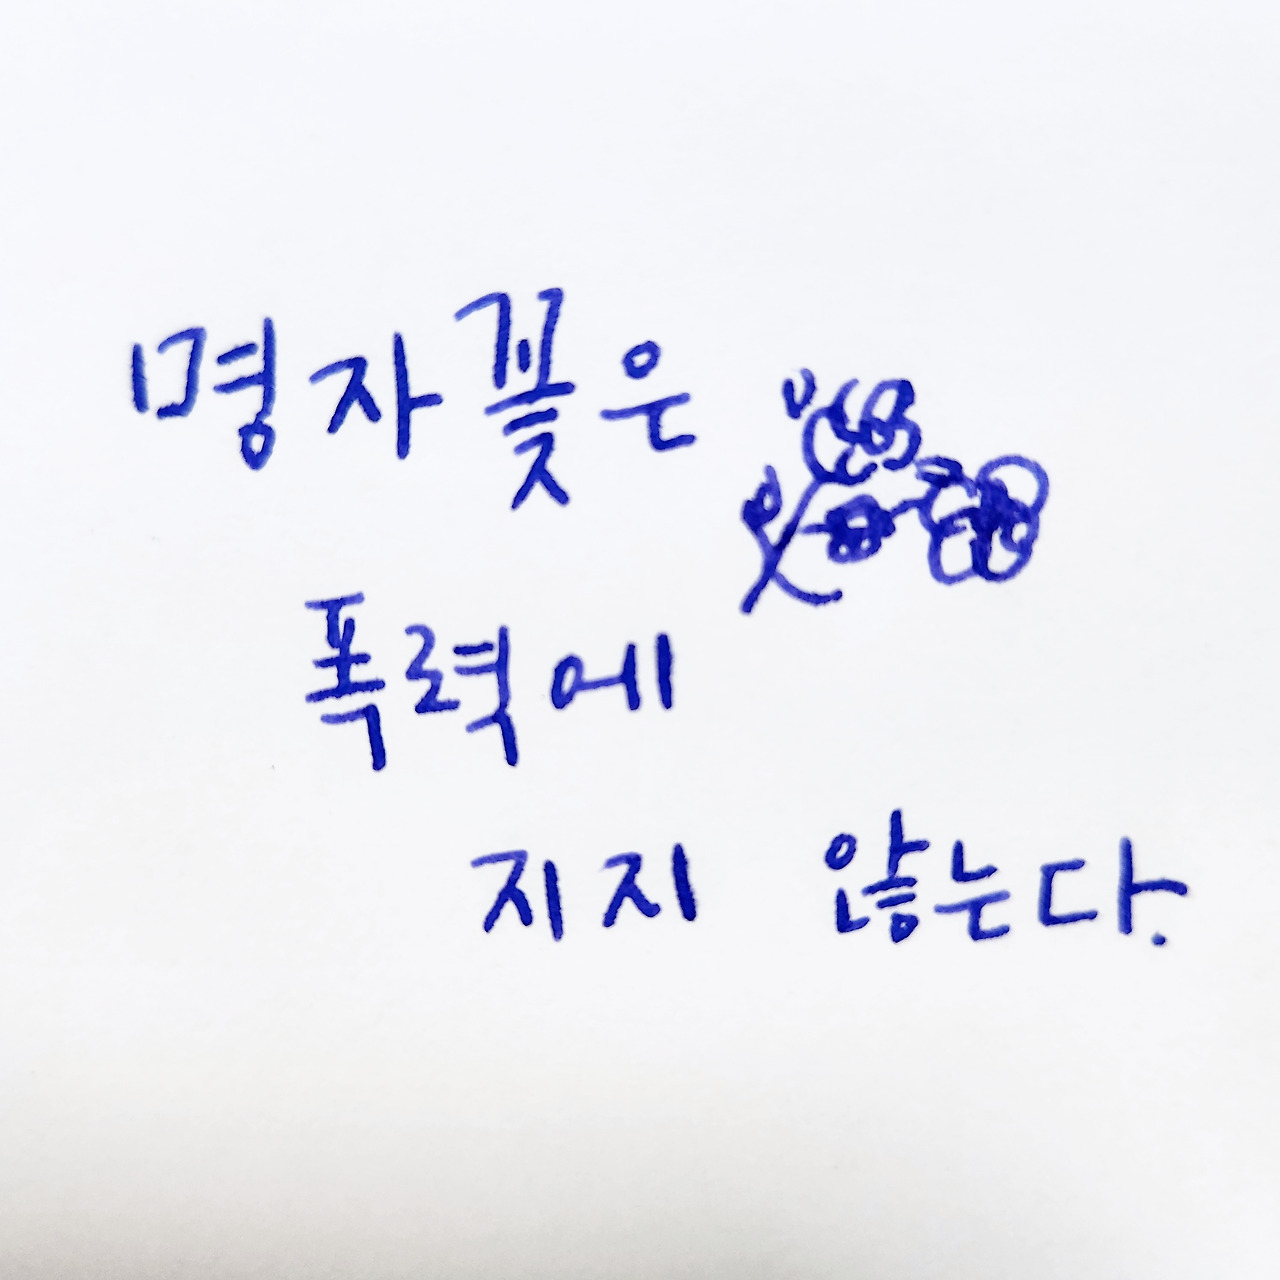 명자꽃은
폭력에
지지 않는다.